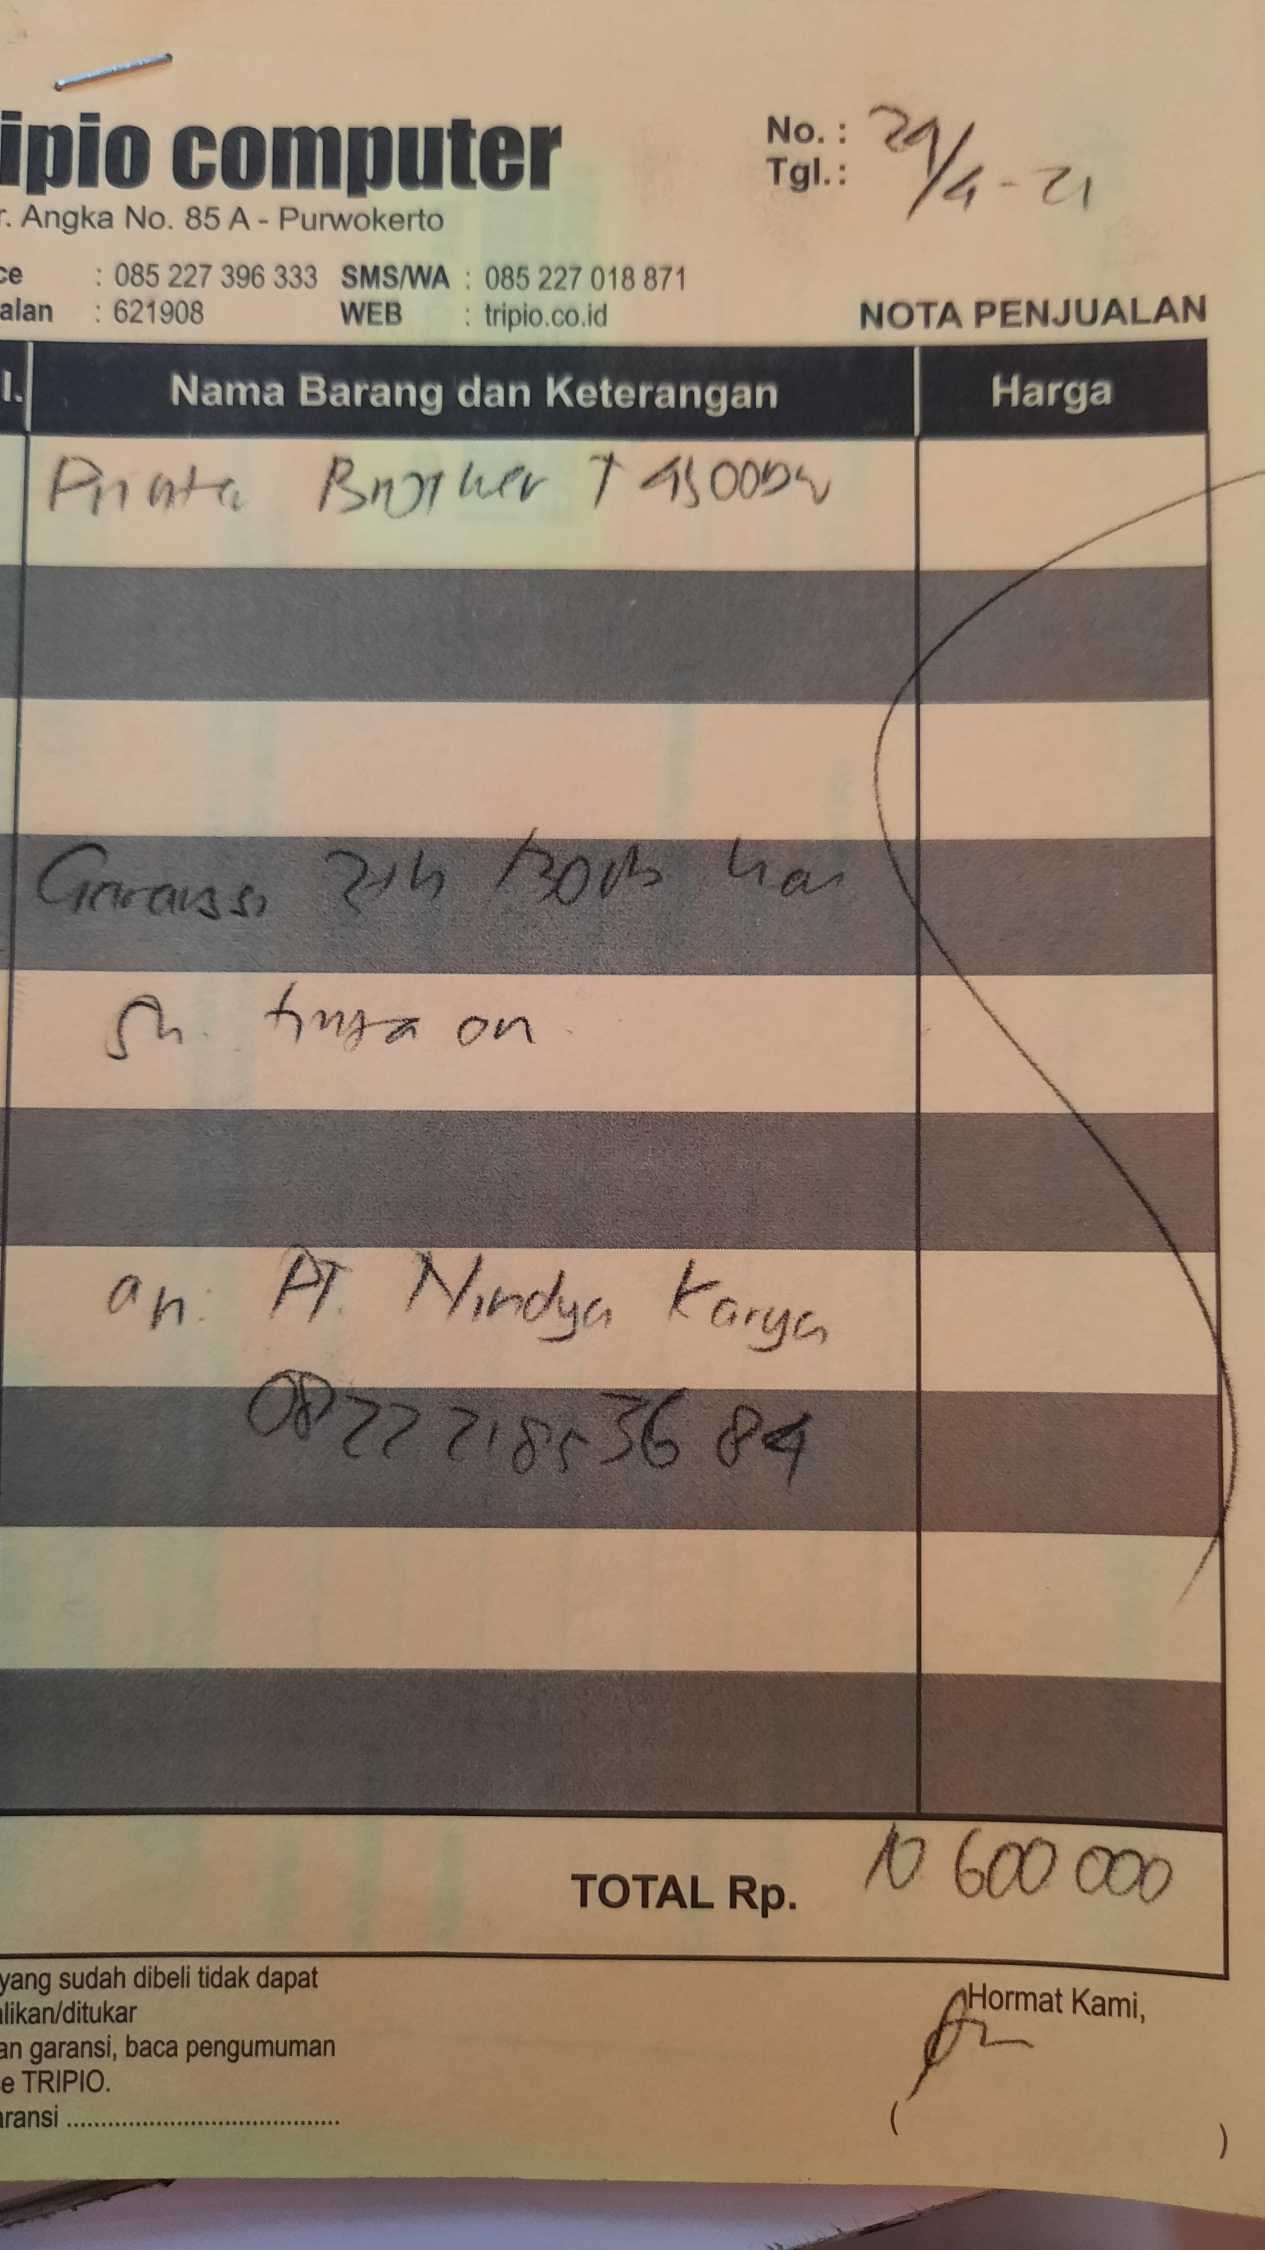 ipio computer
r. Angka No. 85 A - Purwokerto
ce : 085 227 396 333 SMS/WA : 085 227 018 871
alan : 621908 WEB : tripio.co.id
No. :
Tgl. : 29/4-21
NOTA PENJUALAN
l. Nama Barang dan Keterangan Harga
Printer Brother T 4500DW
Garansi 2th /30rb
sn.
an: PT. Nindya Karya
082221853684
TOTAL Rp. 10 600 000
yang sudah dibeli tidak dapat
alikan/ditukar
an garansi, baca pengumuman
e TRIPIO.
aransi ........................................
Hormat Kami,
( )